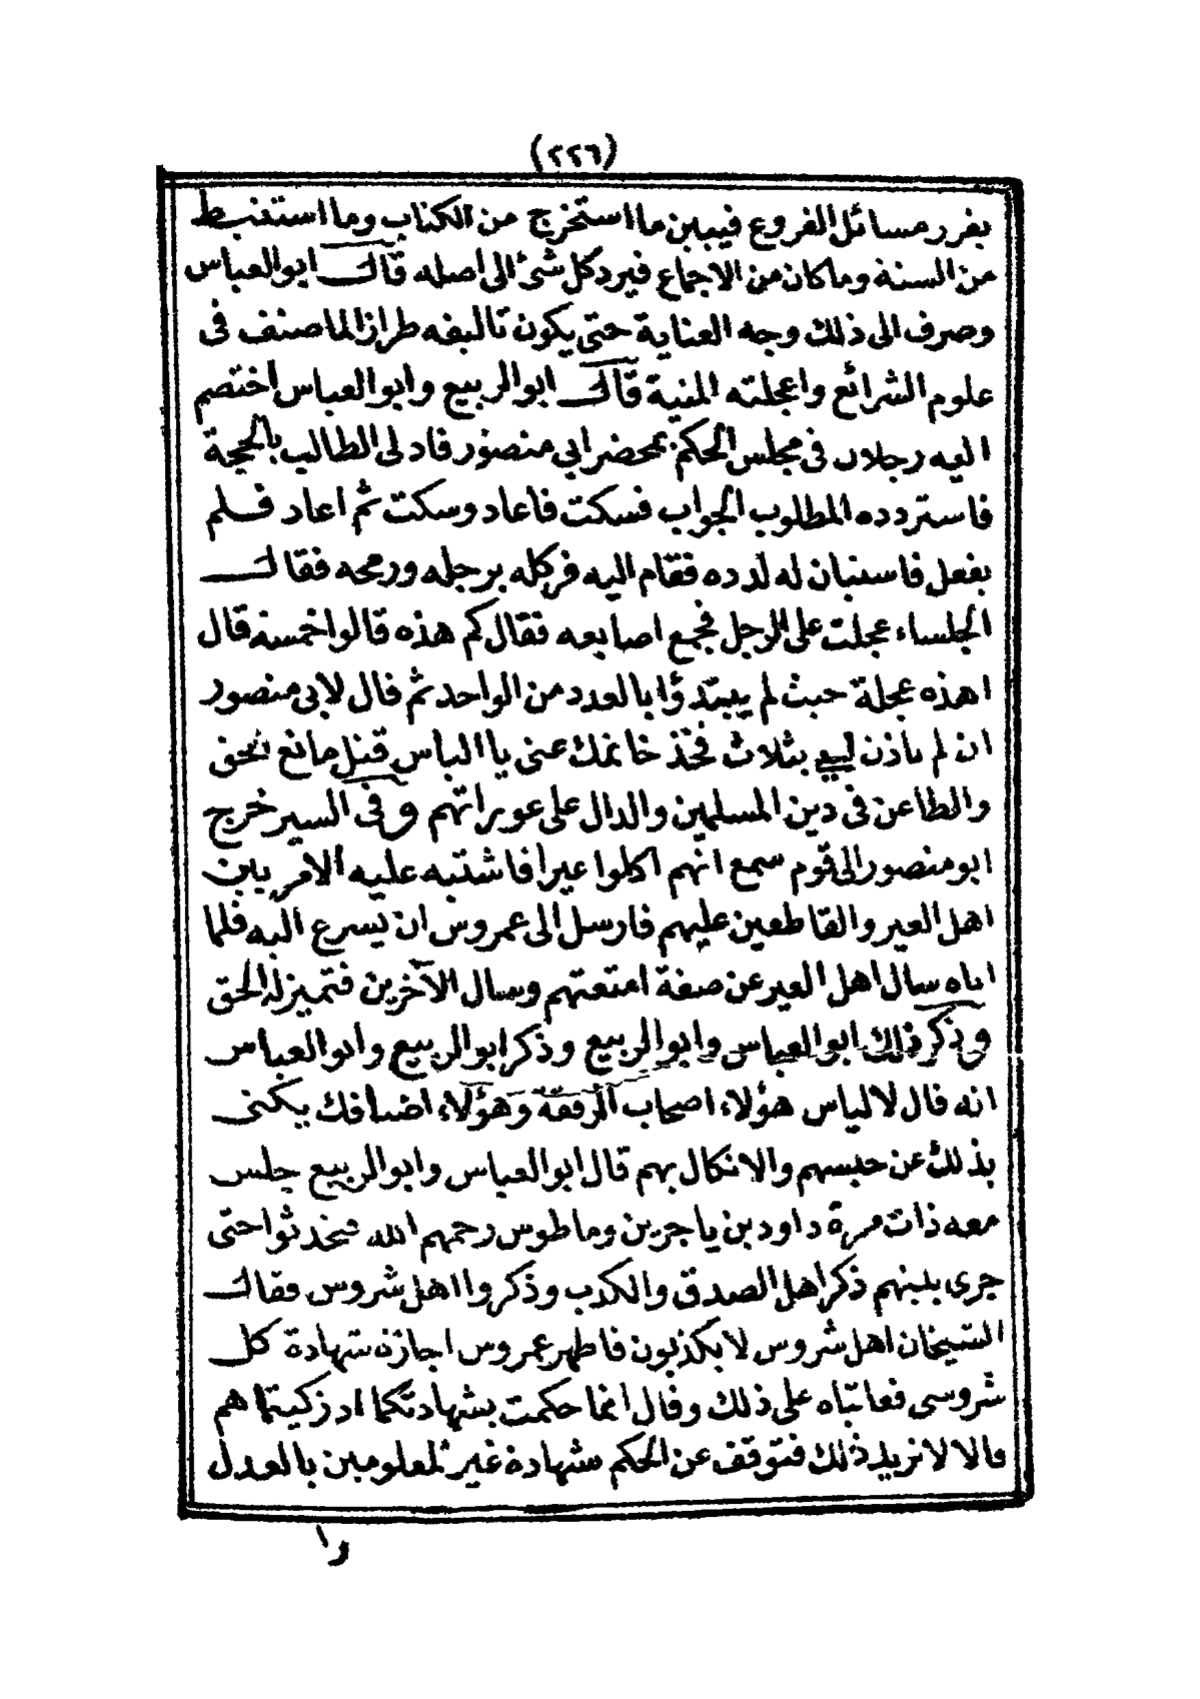 (٢٢٦)
يقرر مسائل الفروع فيبين ما استخرج من الكتاب وما استنبط
من السنة وما كان من الاجماع فيرد كل شئ الى اصله قال ابو العباس
وصرف الى ذلك وجه العناية حتى يكون تاليفه طرازا لما صنف فى
علوم الشرائع واعجلته المنية قال ابو الربيع وابو العباس اختصم
اليه رجلان فى مجلس الحكم بمحضر ابي منصور فادلى الطالب بالحجة
فاستردده المطلوب الجواب فسكت فاعاد وسكت ثم اعاد فلم
يفعل فاستبان له لدده فقام اليه فركله برجله ورمحه فقال
الجلساء عجلت على الرجل فجمع اصابعه فقال كم هذه قالوا خمسة قال
اهذه عجلة حيث لم يبتدؤا بالعدد من الواحد ثم قال لابى منصور
ان لم تاذن لي بثلاث فخذ خاتمك عنى يا الياس قتل مانع الحق
والطاعن فى دين المسلمين والدال على عوراتهم وفى السير خرج
ابو منصور الى قوم سمع انهم اكلوا عيرا فاشتبه عليه الامر بين
اهل العير والقاطعين عليهم فارسل الى عمروس ان يسرع اليه فلما
اتاه سال اهل العير عن صفة امتعتهم وسال الآخرين فتميز له الحق
وذكر ذلك ابو العباس وابو الربيع وذكر ابو الربيع وابو العباس
انه قال لالياس هؤلاء اصحاب الرفقة وهؤلاء اضيافك يكنى
بذلك عن حبسهم والانكال بهم قال ابو العباس وابو الربيع جلس
معه ذات مرة داود بن ياجرين وماطوس رحمهم الله فتحدثوا حتى
جرى بينهم ذكر اهل الصدق والكذب وذكروا اهل شروس فقال
الشيخان اهل شروس لا يكذبون فاظهر عمروس اجازة شهادة كل
شروسى فعاتباه على ذلك وقال انما حكمت بشهادتكما اذ زكيتماهم
قالا لا نريد ذلك فتوقف عن الحكم بشهادة غير المعلومين بالعدل